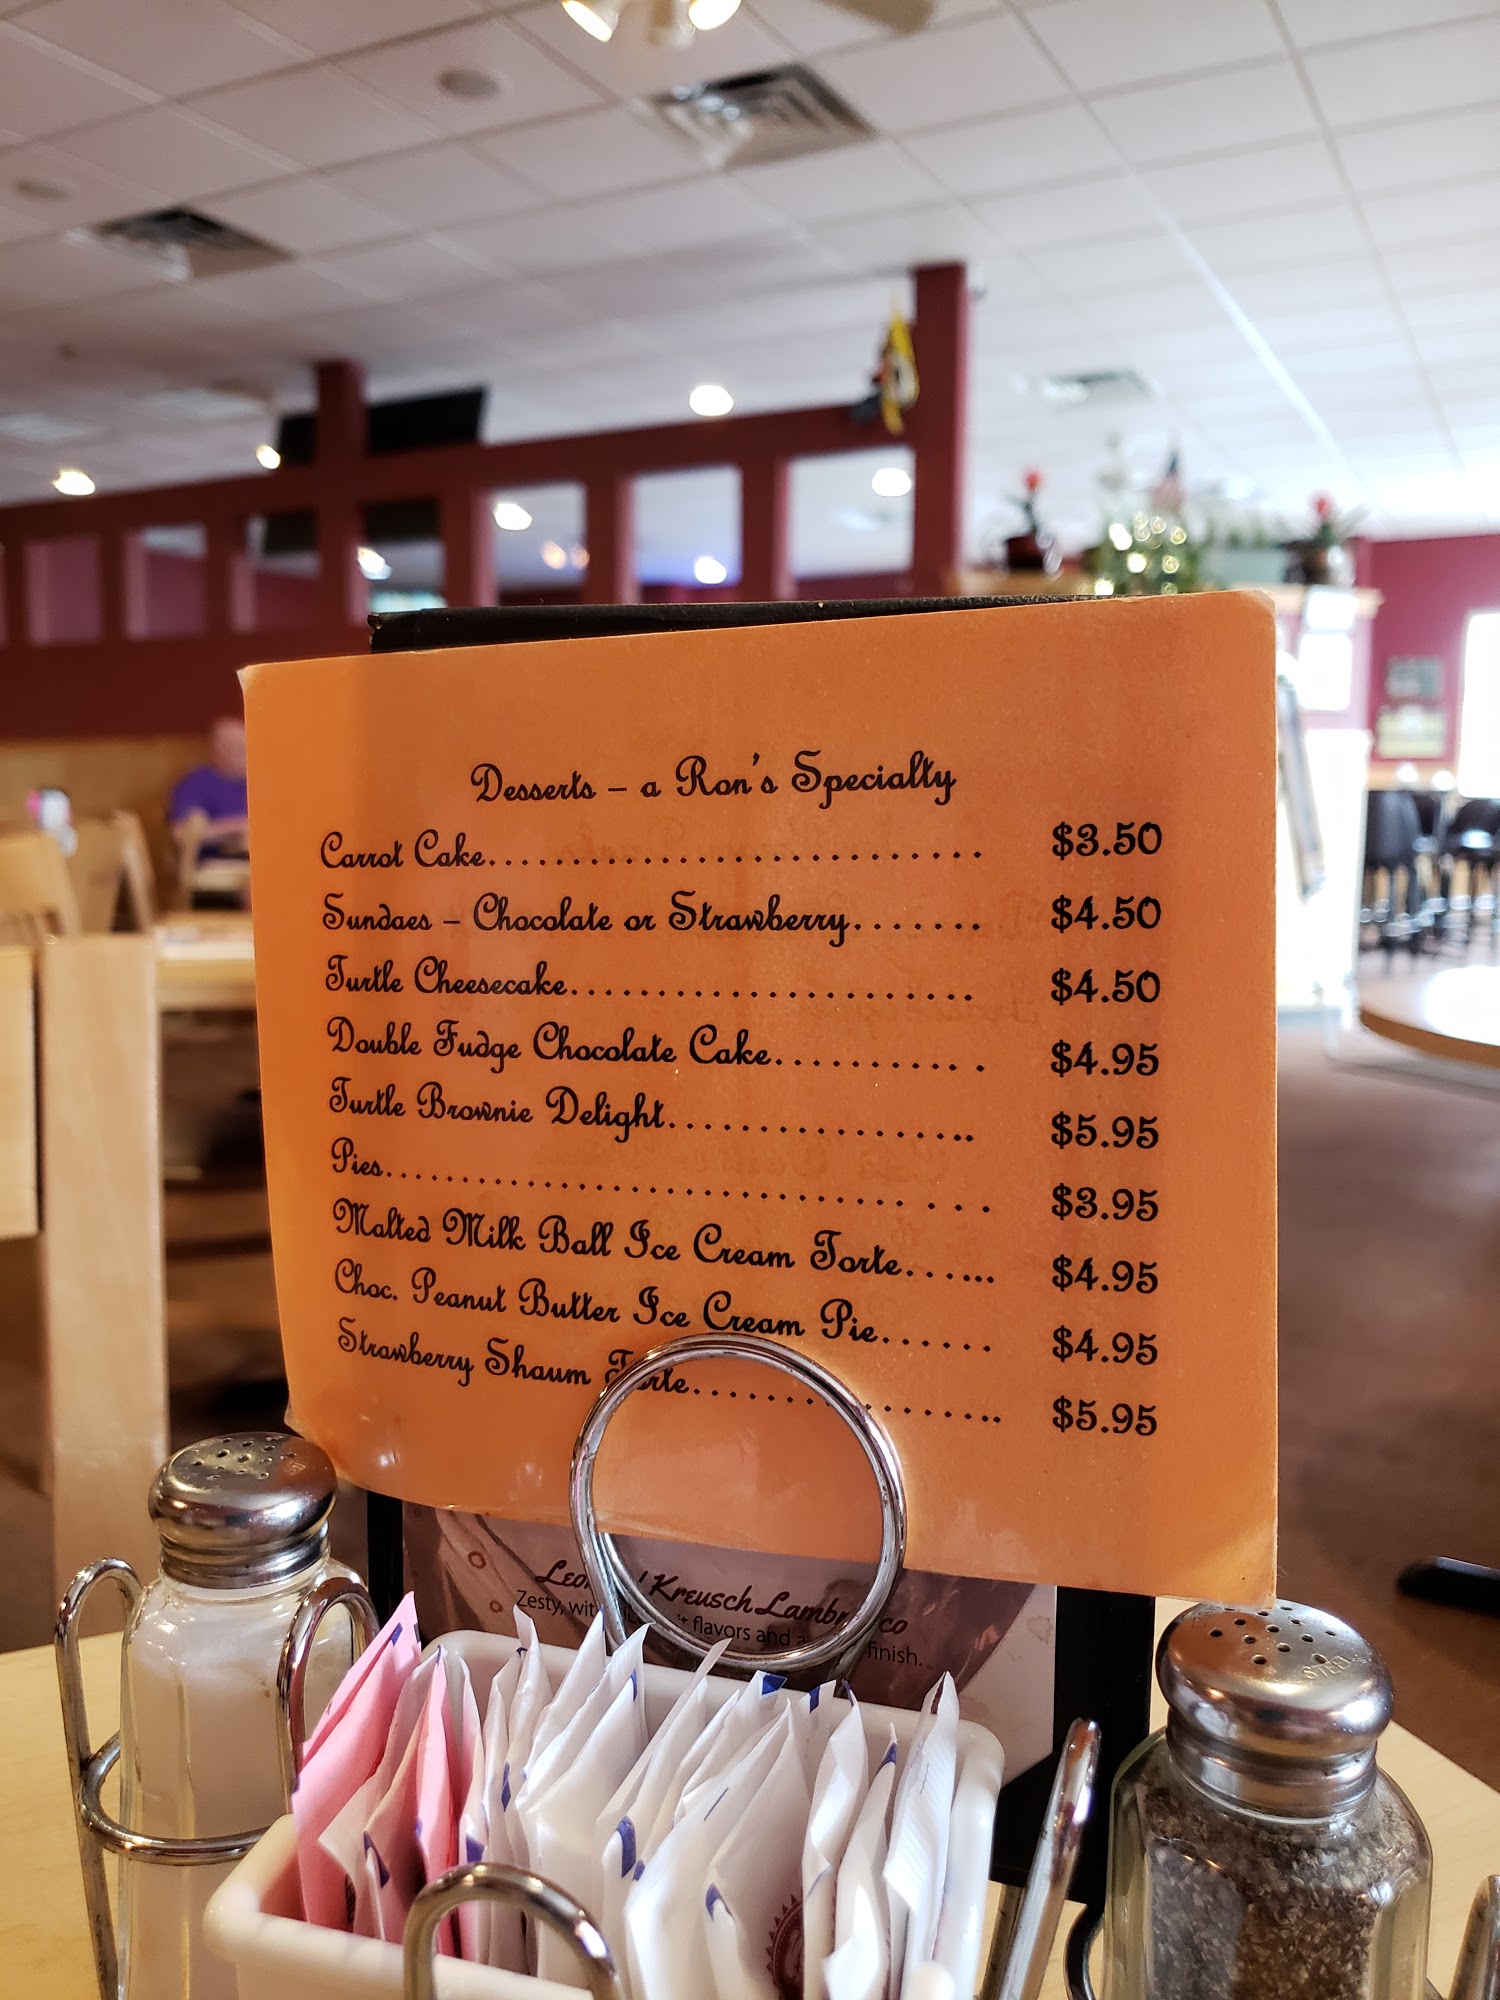 Desserts – a Ron's Specialty
Carrot Cake........................... $3.50
Sundaes – Chocolate or Strawberry....... $4.50
Turtle Cheesecake...................... $4.50
Double Fudge Chocolate Cake........... $4.95
Turtle Brownie Delight................. $5.95
Pies................................ $3.95
Malted Milk Ball Ice Cream Torte...... $4.95
Choc. Peanut Butter Ice Cream Pie...... $4.95
Strawberry Shaum Torte............... $5.95
Kreusch
Zesty, flavors and finish.